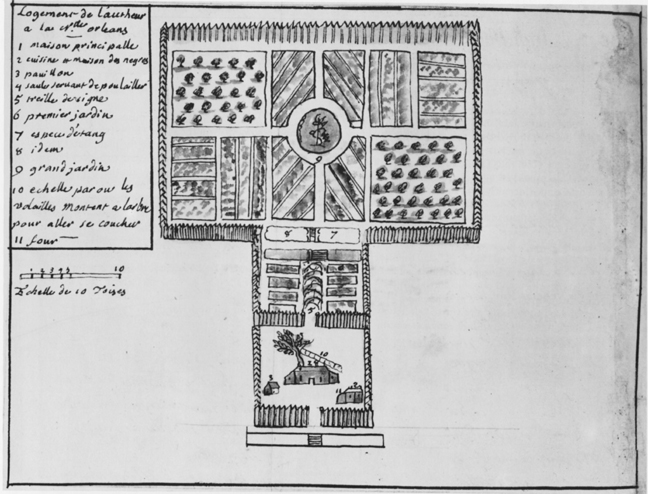 Logement de l'autheur
a la Nlle orleans
1 maison principalle
2 cuisine et maison des negres
3 pavillon
4 saule servant de poulailler
5 treille de vigne
6 premier jardin
7 espece d'étang
8 idem
9 grand jardin
10 echelle par ou les
volailles montent a larbre
pour aller se coucher
11 four
8 7
9
5
10
2
11
1 2 3 4 5 10
Echelle de 10 Toises